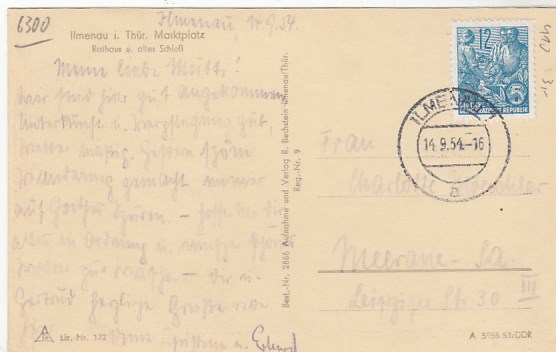 6300
Ilmenau, 14.9.54.
Ilmenau i. Thür. Marktplatz
Rathaus u. altes Schloß
Meine liebe Mutti!
Wir sind hier gut angekommen
Unterkunft u. Verpflegung gut,
Wetter mäßig. Gestern schöne
Wanderung gemacht, immer
auf Goethes Spuren. – Hoffe bei dir
alles in Ordnung u. wünsche schönes
Wetter zur Wäsche – dir u.
Gertrud herzliche Grüße von
u. Erhard
Liz.-Nr. 172
Best.-Nr. 2866 Aufnahme und Verlag R. Bechstein Ilmenau/Thür.
Reg.-Nr. 9
12
DEUTSCHE
DEMOKRATISCHE REPUBLIK
ILMENAU
14.9.54.-16
a
Frau
Charlotte
Meerane – Sa.
Leipziger Str. 30 III
A 5156/53/DDR